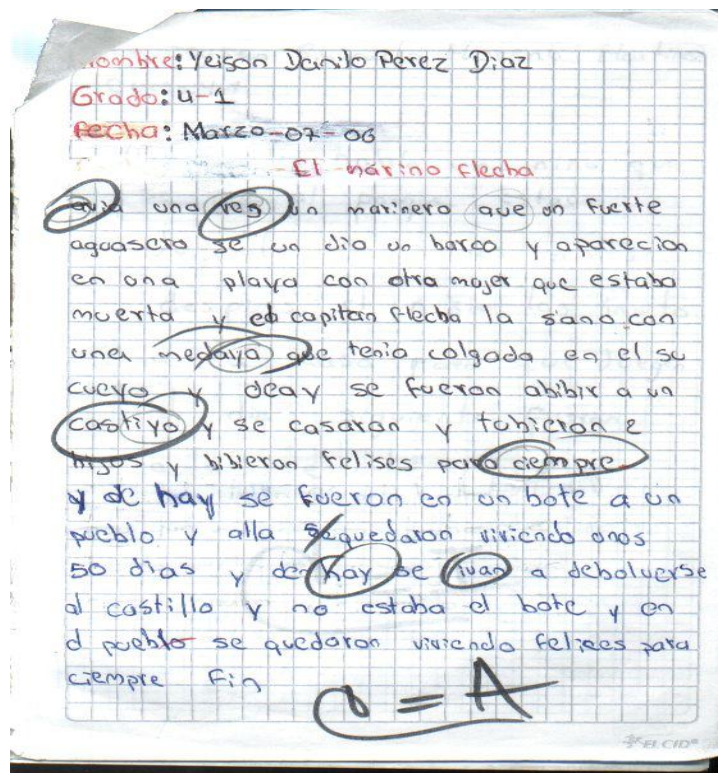 Nombre: Yeison Danilo Perez Diaz
Grado: 4-1
fecha: Marzo-07-06
El marino flecha
avia una ves un marinero que un fuerte
aguasero se un dio un barco y aparecion
en una playa con otra mujer que estaba
muerta y el capitan flecha la sano con
una medaya que tenia colgada en el su
cueyo y deay se fueron abibir a un
castiyo y se casaron y tubieron 2
hijos y bibieron felises para ciempre
y de hay se fueron en un bote a un
pueblo y alla se quedaron viviendo unos
50 dias y de hay se ivan a debolverse
al castillo y no estaba el bote y en
el pueblo se quedaron viviendo felices para
ciempre Fin
= A
EL CID®